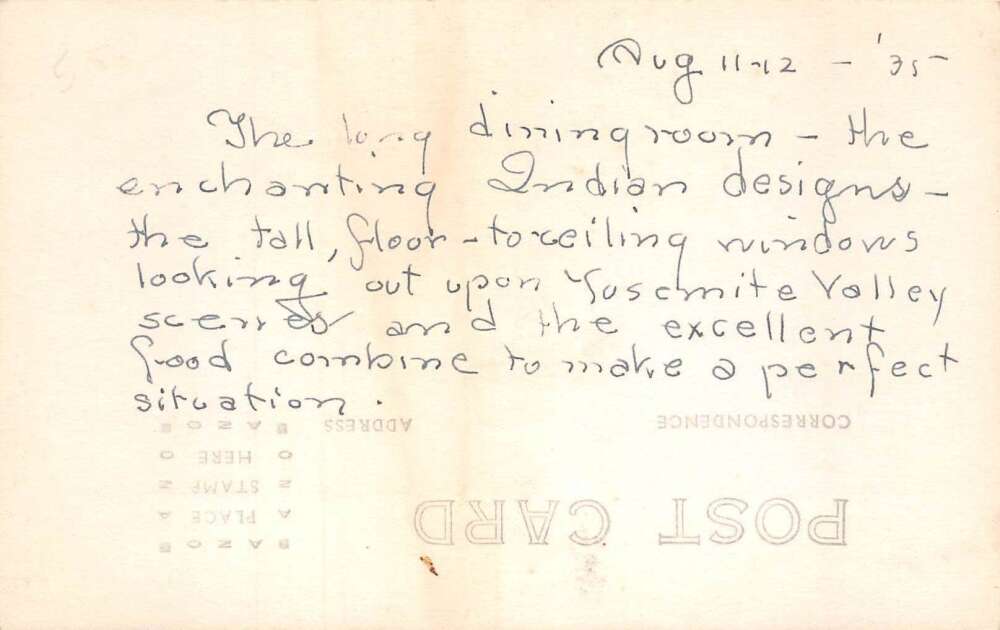 Aug 11-12 - '35
The long dining room - the
enchanting Indian designs -
the tall, floor-to-ceiling windows
looking out upon Yosemite Valley
scenes and the excellent
food combine to make a perfect
situation.
CORRESPONDENCE ADDRESS
POST CARD
PLACE
STAMP
HERE